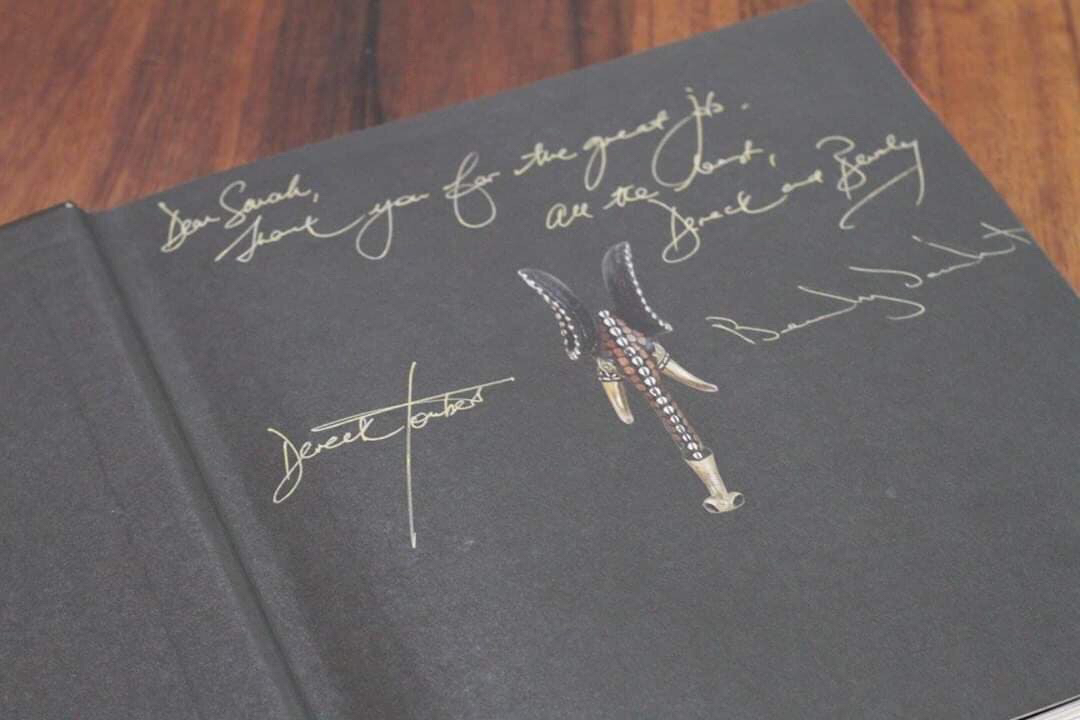 Dear Sarah,
Thank you for the great job.
All the best,
Dereck and Beverly
Beverly Joubert
Dereck Joubert